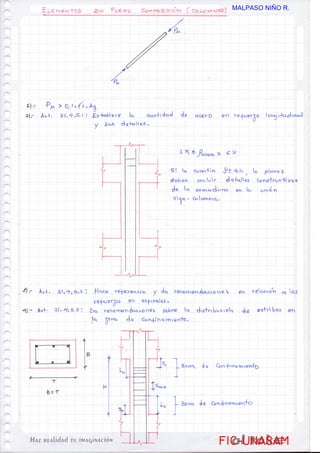 ELEMENTOS EN FLEXO COMPRESIÓN (COLUMNAS)
MALPASO NIÑO R.
Pu
Pu
1).- Pu > 0,1.f'c.Ag
2).- Art. 21.4.5.1: Establece la cantidad de acero en refuerzo longitudinal
y sus detalles.
1 % ≤ ρ ≤ 6 %
Si la cuantía ρ ≥ 4% la planos
deben incluir detalles constructivos
de la armadura en la unión
Viga - Columna.
Art. 21.4.5.2: Hace referencia y da recomendaciones en relación a los
refuerzos en espirales.
4).- Art. 21.4.5.3: Da recomendaciones sobre la distribución de estribos en
la zona de Confinamiento.
B
T
B = T
H
Lo
Zona de Confinamiento
Smax
Lo
Zona de Confinamiento
Haz realidad tu imaginación
FIC-UNASAM